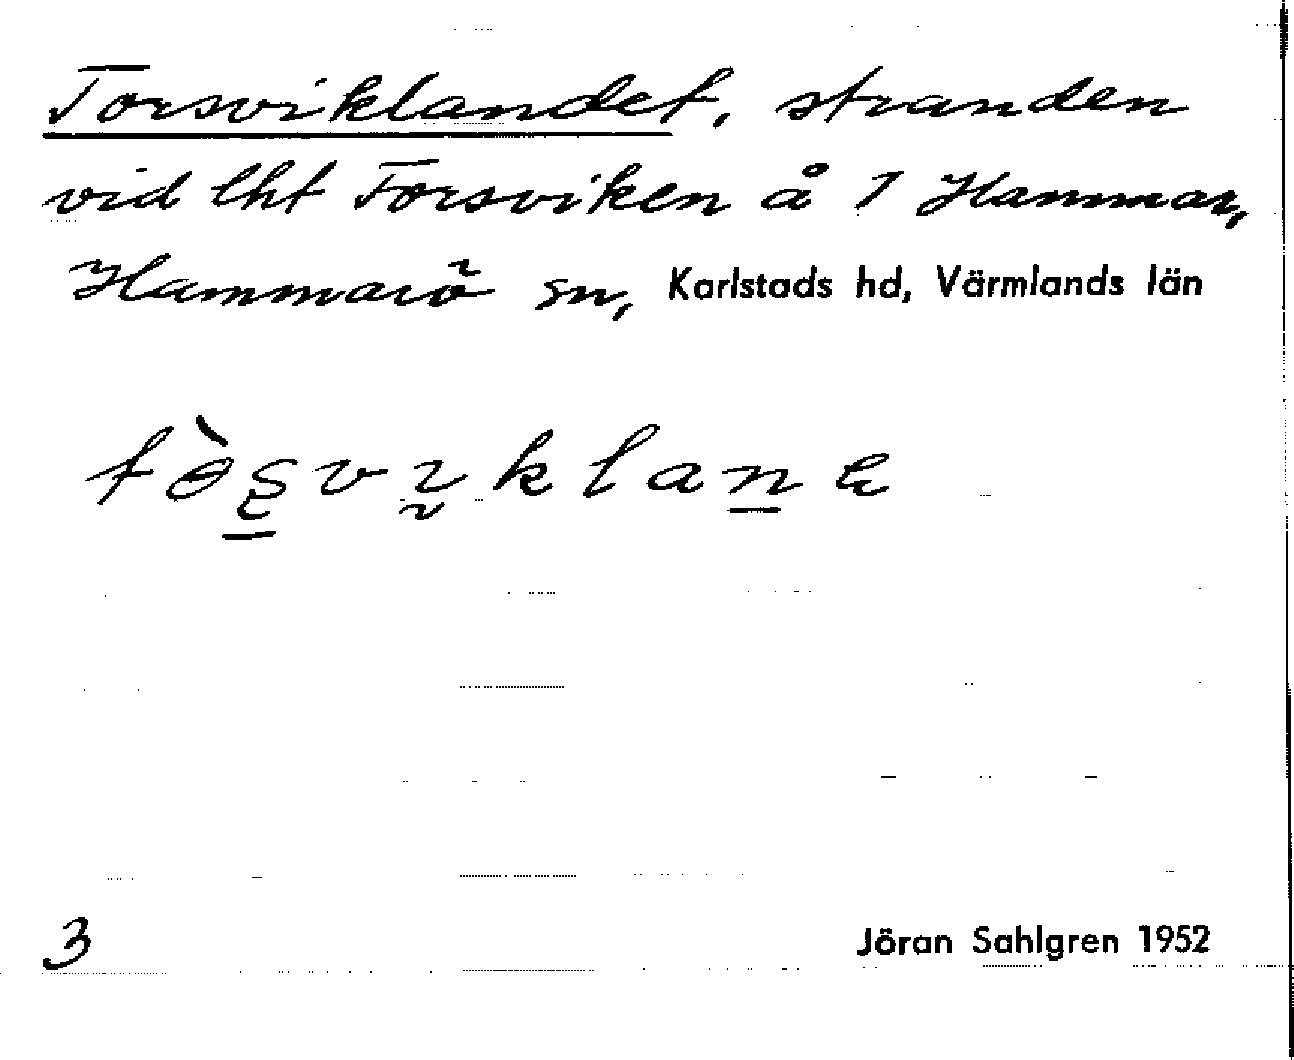 Torsviklandet, stranden
vid lht Torsviken å 1 Hammar,
Hammarö sn, Karlstads hd, Värmlands län
3
Jöran Sahlgren 1952